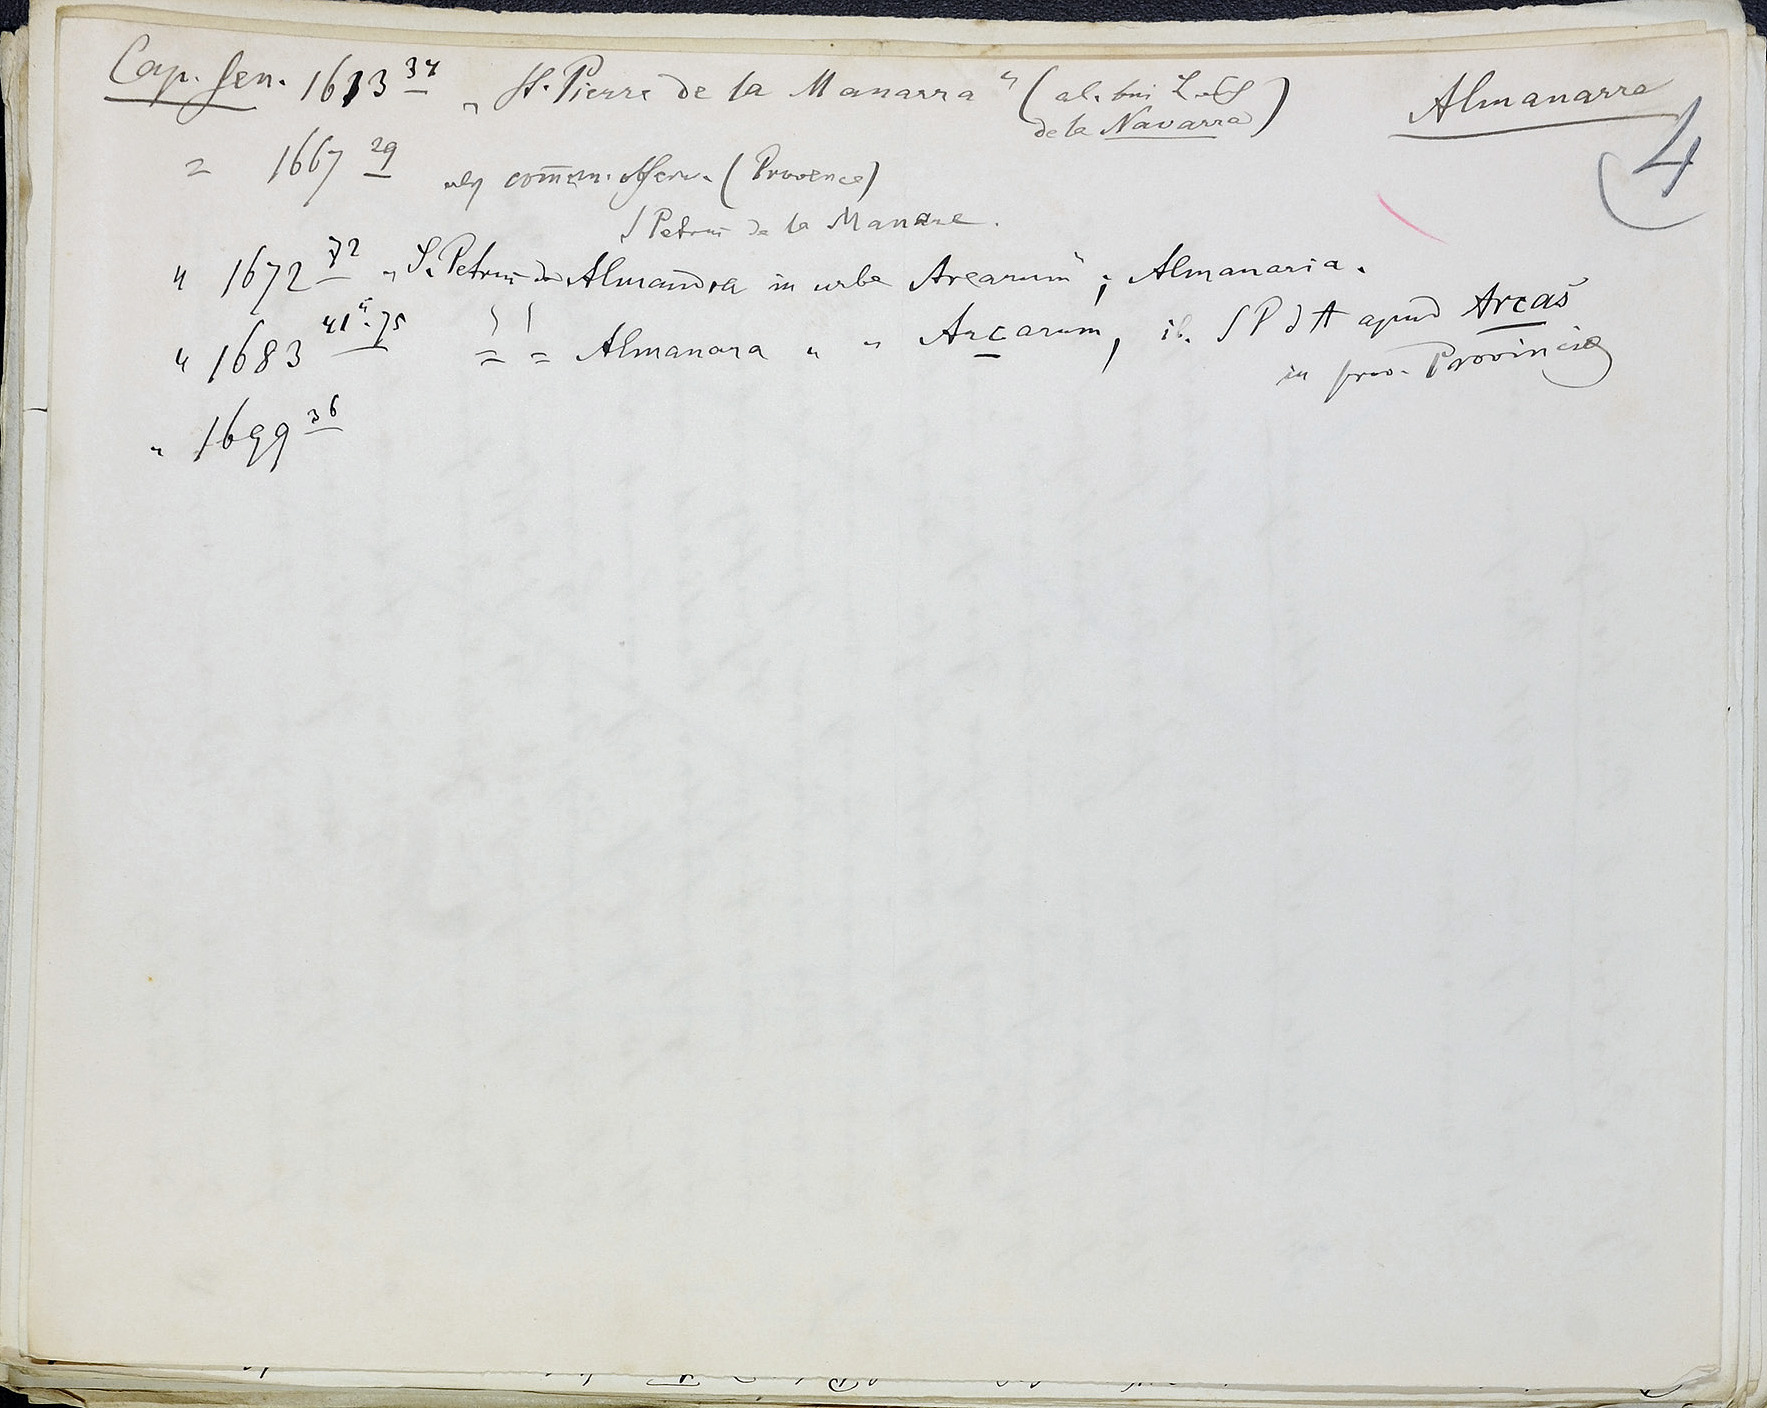 Cap. Gen. 1613 34 „ St. Pierre de la Manarra " ( al. bei
de la Navarra ) Almanarra
4
= 1667 29 comm. observ. ( Provence )
S Petrus de la Manare.
" 1672 72 „ S. Petrus de Almandra in urbe Arearum " ; Almanaria.
" 1683 41 . 75 = = Almanara " " Arcarum, S P d A apud Arcas
in prov. Provinciæ
" 1699 36